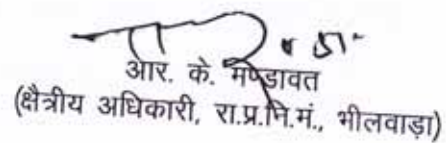 आर. के. मण्डावत
(क्षेत्रीय अधिकारी, रा.प्र.नि.मं., भीलवाड़ा)